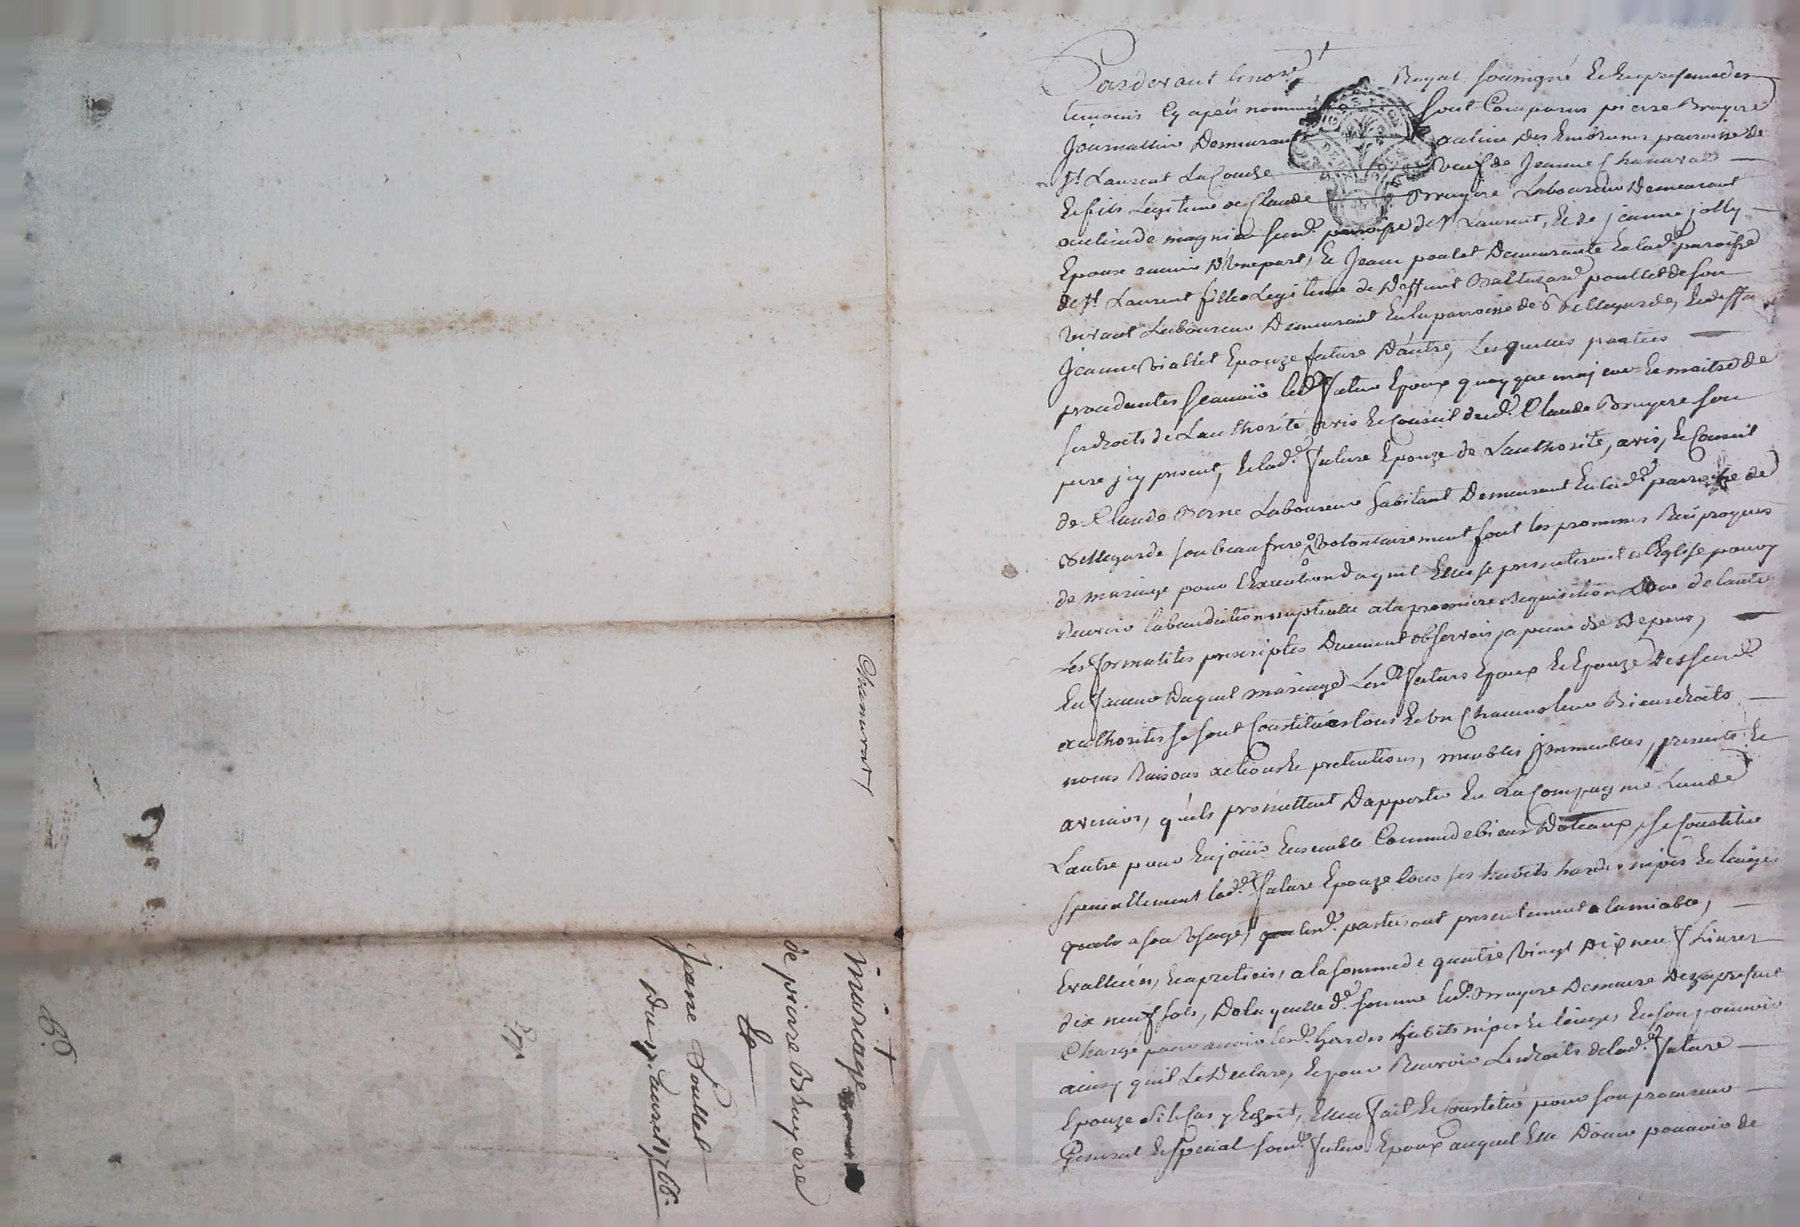 Pardevant le not.re Royal soussigné Et En presence des
temoins Cy apres nommés sont Comparus pierre Bruyere
Journallier Demeurant au lieu des paroisse de
St Laurent La Conche veuf de Jeanne Chanavat
Et fils Legitime de Claude Bruyere Laboureur Demeurant
au lieu de magnieu parroisse de St Laurent, Et de jeanne jolly
Epoux avenir D'une part, Et Jeanne poulet Demeurante En lad.e paroisse
de St Laurent fille Legitime de Deffunt Baltazard poullet de son
vivant Laboureur Demeurant En la parroisse de Bellegarde, Et deffte
Jeanne Viallet Epouze future D'autre, Lesquelles parties
procedantes sçauoir led. futur Epoux quoyque majeur Et maitre de
ses droits de L'authorité avis Et Conseil dud. Claude Bruyere son
pere icy present, Et lad.e future Epouze de L'authorité, avis, Et Conseil
de Claude Laboureur habitant Demeurant En lad.e parroisse de
Bellegarde son beaufrere Volontairement font les promesses Reciproques
de mariage pour L'Execution duquel Elles se presenteront à L'Eglise pour y
Recevoir la benediction nuptialle a la premiere Requisition L'une de l'autre
Les formalités prescriptes Duement observées, a peine de Depens,
En faveur Duquel mariage Lesd. futurs Epoux Et Epouze Desseurd.
authorités se sont Constitués tous Et un Chacuns leurs Biens droits
noms Raisons actions Et pretentions, meubles immeubles, presents Et
avenir, qu'ils promettent D'apporter En La Compagnie L'un de
L'autre pour En joüir Ensemble Comme de biens Dotaux, se Constitue
speciallement lad.e future Epouze tous ses habits hardes nipes Et linges
a son Usage, que lesd. parties ont presentement a lamiable,
Evalluées, Et apretiées, a la somme de quatre Vingt Dix neuf Livres
dix neuf sols, De la quelle d.e somme led. Bruyere Demeure Dez a present
Chargé pour avoir lesd. Hardes habits nipes Et linges En son pouvoir
ainsy qu'il Le Declare, Et pour Recevoir Les droits de lad.e future
Epouze Si le Cas y Echoit, Elle a fait Et Constitué pour son procureur
General Et special sond. futur Epoux auquel Elle Donne pouvoir de
Chamurat
mariage
de pierre Bruyere
Et
Jeane Poullet
Du 17 avril 1766.
Exp.
Pascal CHAREYRON